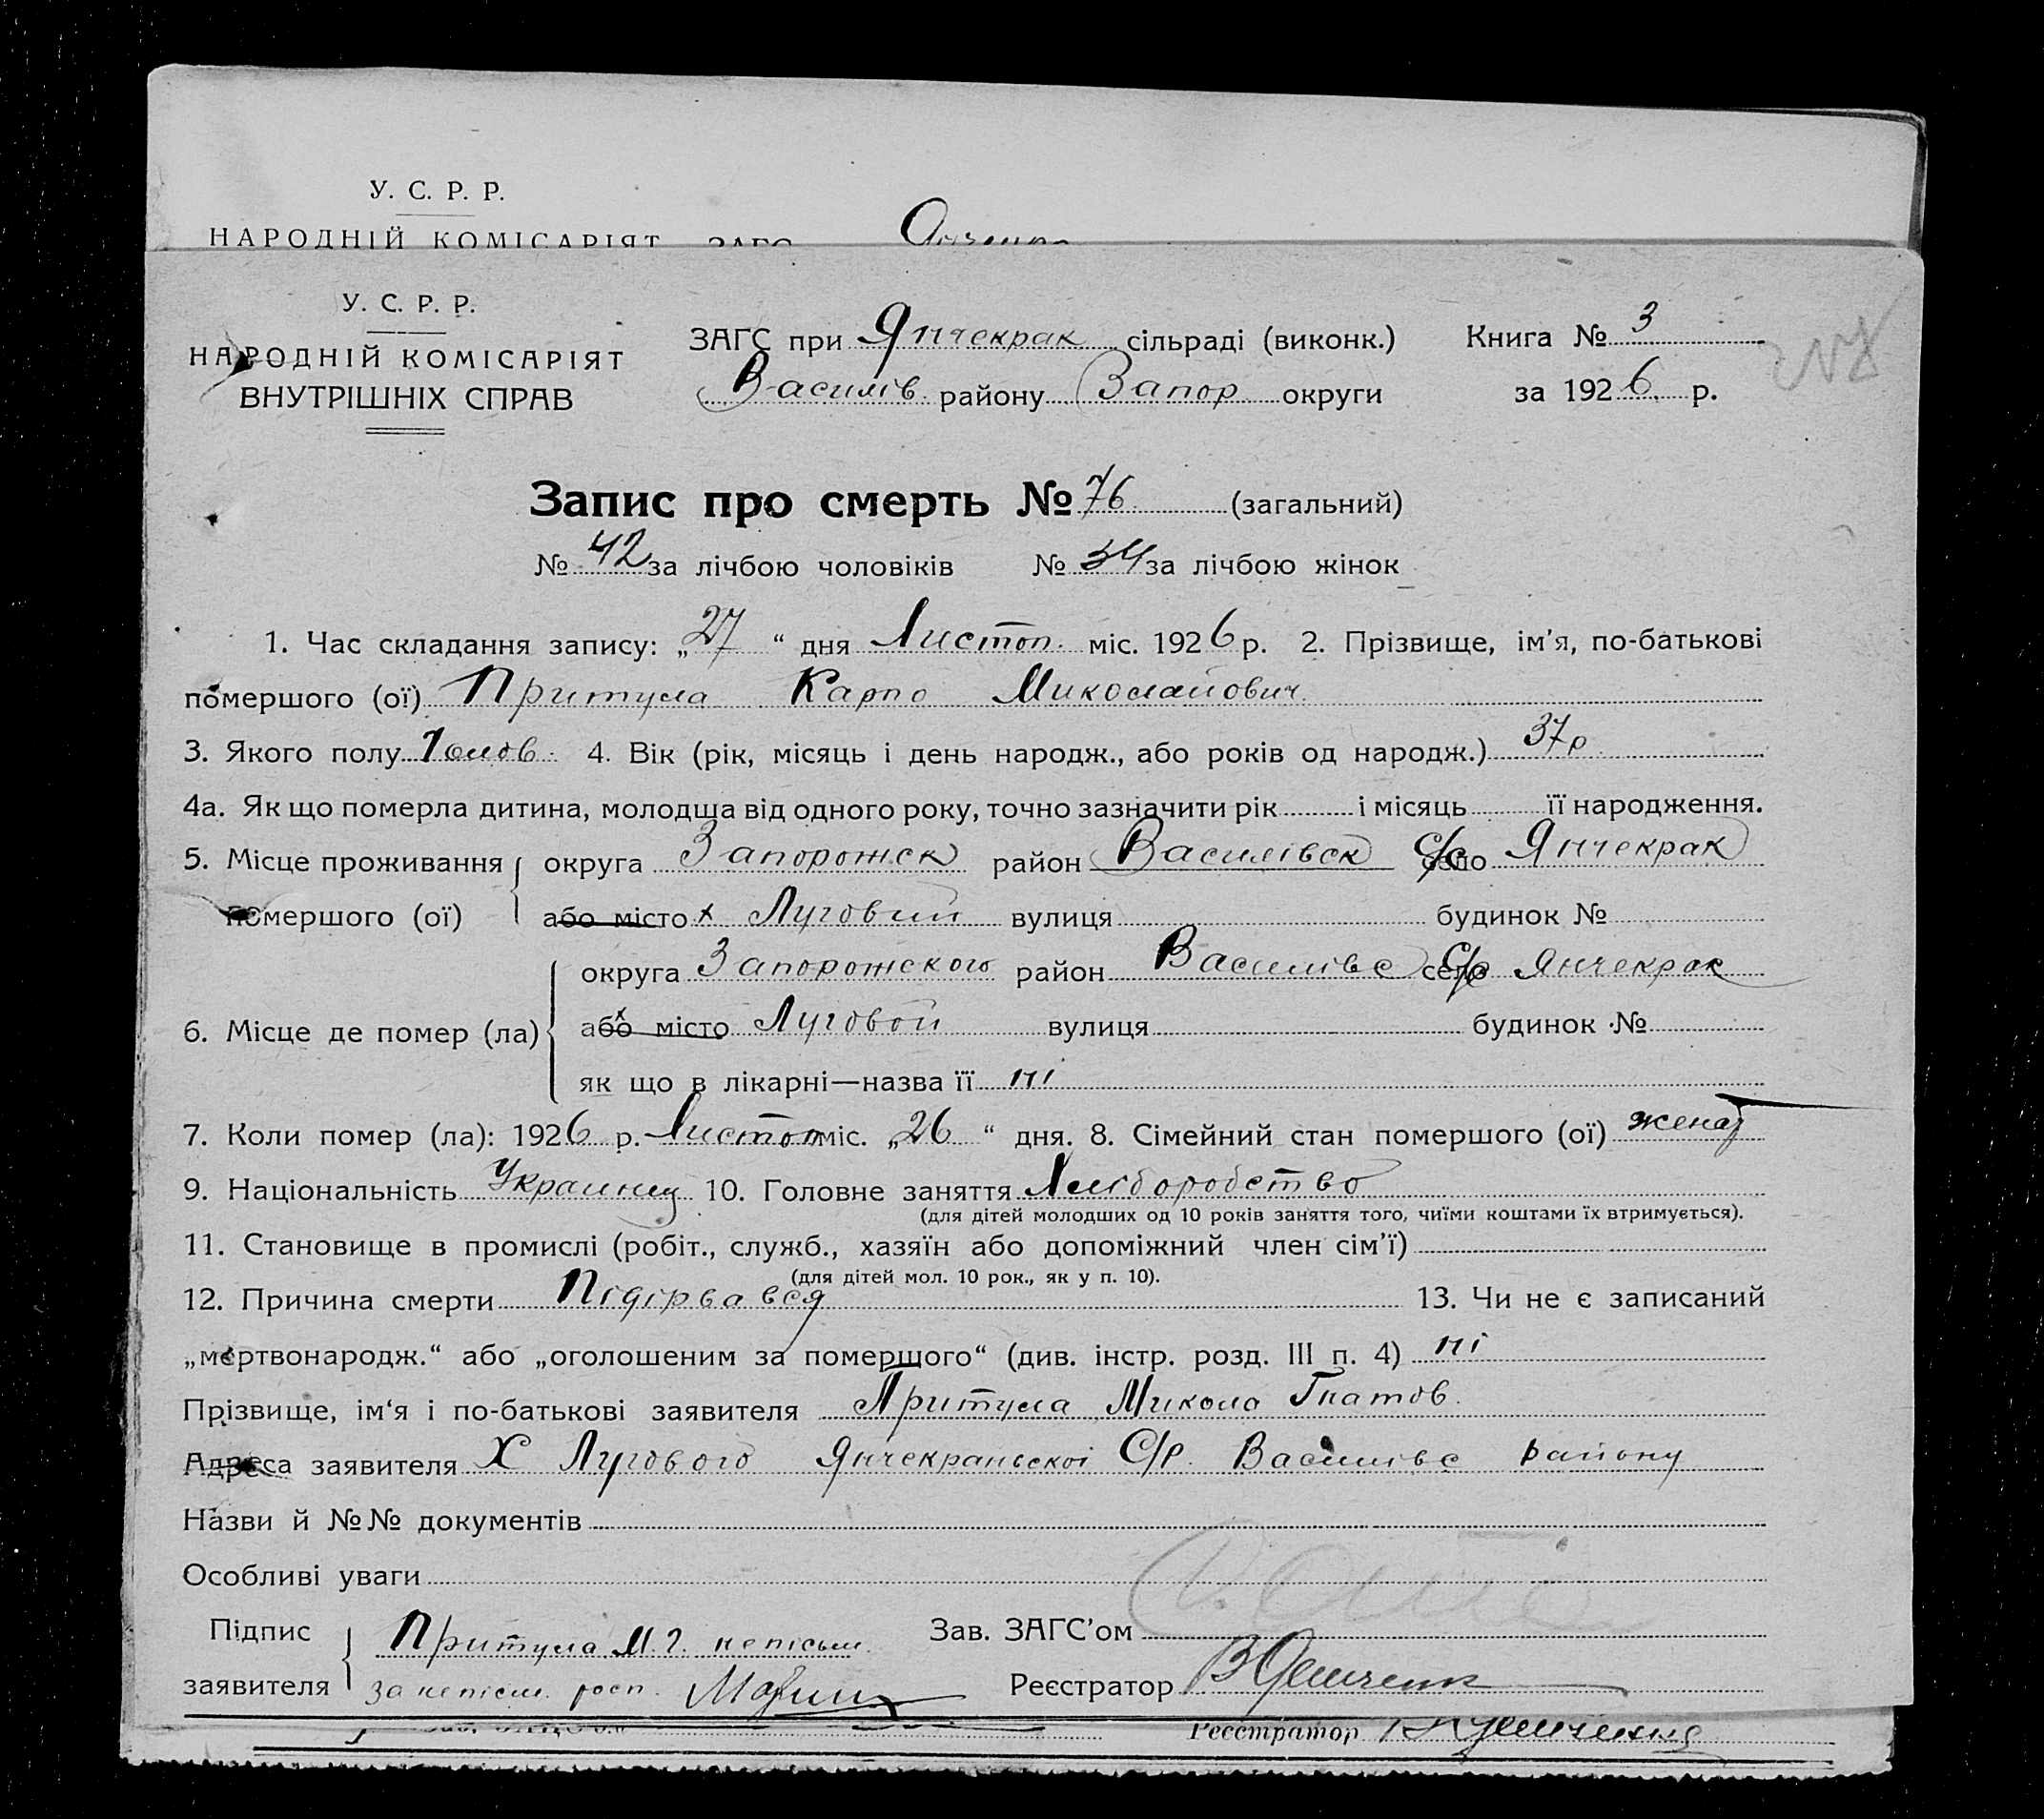 У. С. Р. Р.
НАРОДНІЙ КОМІСАРІЯТ ЗАГС
У. С. Р. Р.
НАРОДНІЙ КОМІСАРІЯТ
ВНУТРІШНІХ СПРАВ
ЗАГС при Янчекрак сільраді (виконк.) Книга № 3
Василів. району Запор. округи за 1926 р.
Запис про смерть № 76 (загальний)
№ 42 за лічбою чоловіків № 34 за лічбою жінок
1. Час складання запису: „27“ дня Листоп. міс. 1926 р. 2. Прізвище, ім'я, по-батькові
помершого (ої) Притула Карпо Миколайович
3. Якого полу Чолов. 4. Вік (рік, місяць і день народж., або років од народж.) 37 р.
4а. Як що померла дитина, молодша від одного року, точно зазначити рік і місяць її народження.
5. Місце проживання округа Запорожск район Василівск село С/с Янчекрак
помершого (ої) або місто х Луговий вулиця будинок №
округа Запорожского район Василівс село С/р Янчекрак
6. Місце де помер (ла) або місто х Луговой вулиця будинок №
як що в лікарні—назва її ні
7. Коли помер (ла): 1926 р. Листоп міс. „26“ дня. 8. Сімейний стан помершого (ої) женат
9. Національність Украинец 10. Головне заняття Хліборобство
(для дітей молодших од 10 років заняття того, чиїми коштами їх втримується).
11. Становище в промислі (робіт., служб., хазяїн або допоміжний член сім'ї)
(для дітей мол. 10 рок., як у п. 10).
12. Причина смерти Підірвався 13. Чи не є записаний
„мертвонародж.“ або „оголошеним за помершого“ (див. інстр. розд. III п. 4) ні
Прізвище, ім'я і по-батькові заявителя Притула Микола Гнатов.
Адреса заявителя Х Лугового Янчекранської С/р. Василівс району
Назви й №№ документів
Особливі уваги
Підпис Притула М. Г. непісьм. Зав. ЗАГС'ом
заявителя за непісм. росп. Реєстратор
Реєстратор